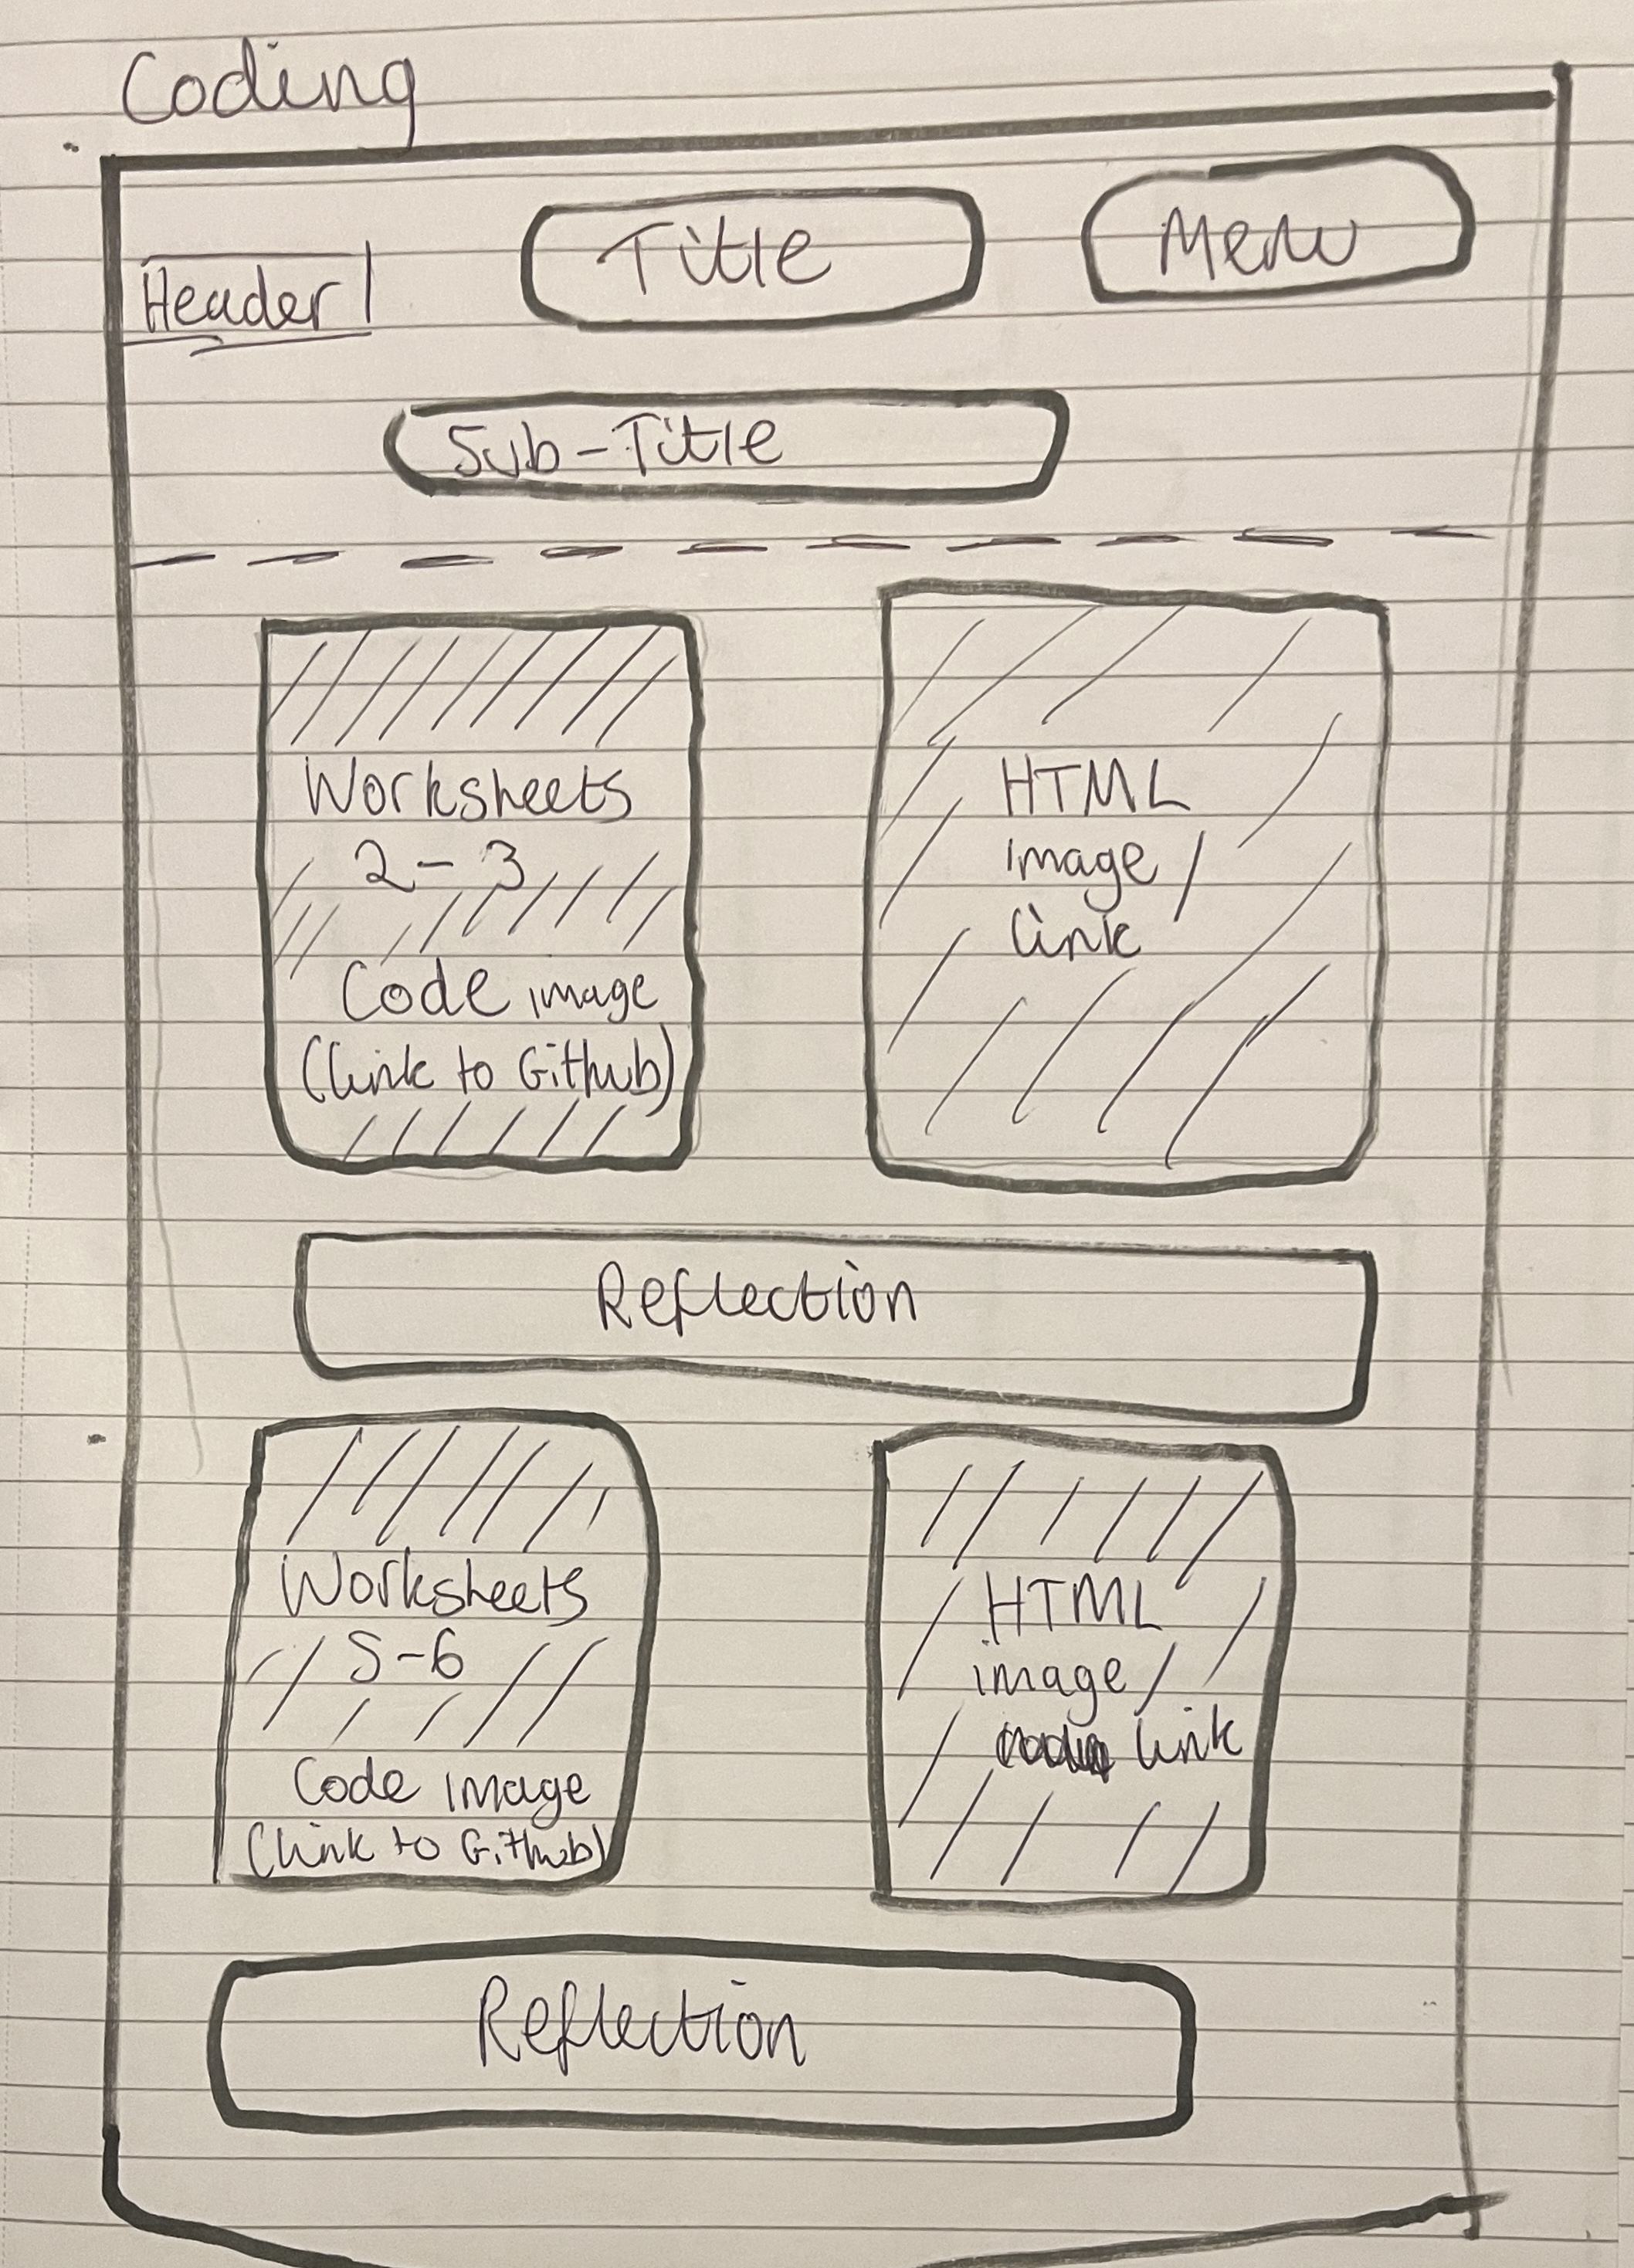 Coding
Header
Title
Menu
Sub-Title
Worksheets
2-3
Code image
(link to Github)
HTML
image/
link
Reflection
Worksheets
5-6
Code image
(link to Github)
HTML
image/
link
Reflection